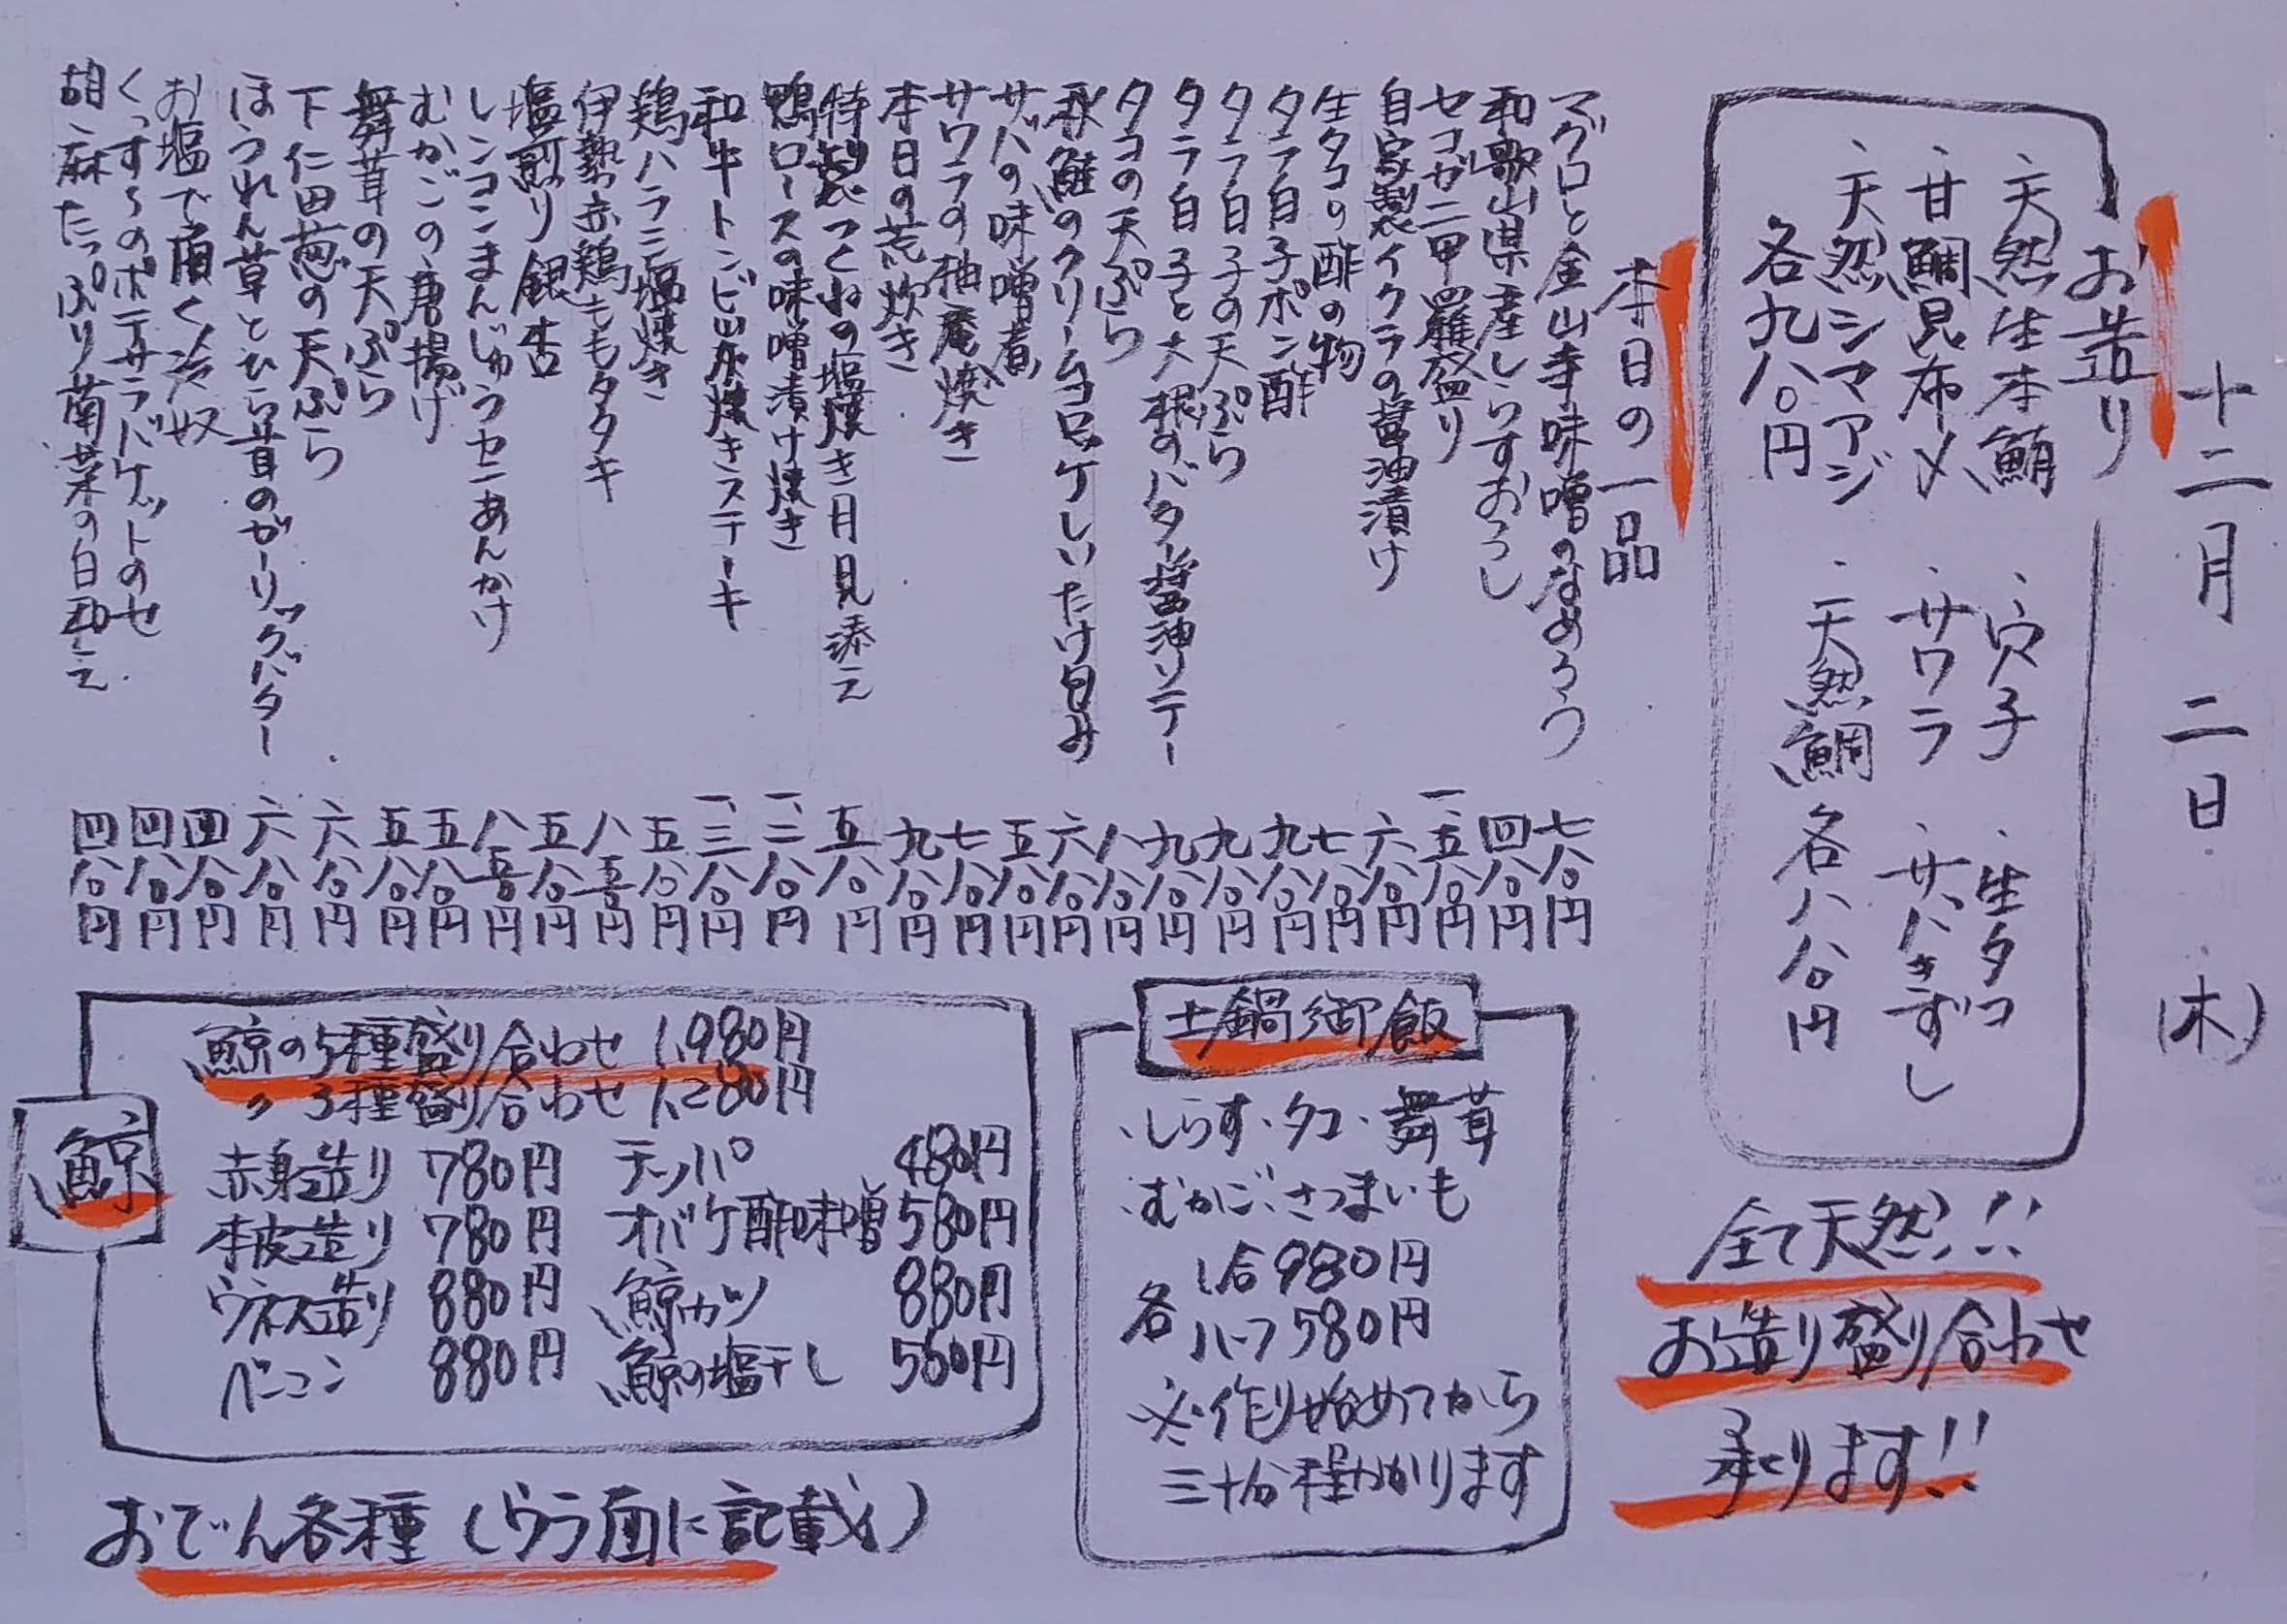 十二月二日(木)
お造り
・天然生本鮪
・甘鯛昆布〆
・天然シマアジ
各九八〇円
・穴子
・サワラ
・天然鯛
・生タコ
・サバきずし
各八八〇円
全て天然!!
お造り盛り合わせ
承ります!!
本日の一品
マグロと金山寺味噌のなめろう 七八〇円
和歌山県産しらすおろし 四八〇円
セコガニ甲羅盛り 一、五八〇円
自家製イクラの醤油漬け 六八〇円
生タコの酢の物 七八〇円
タラ白子ポン酢 九八〇円
タラ白子の天ぷら 九八〇円
タラ白子と大根のバター醤油ソテー 九八〇円
タコの天ぷら 八八〇円
秋鮭のクリームコロッケしいたけ包み 六八〇円
サバの味噌煮 五八〇円
サワラの柚庵焼き 七八〇円
本日の荒炊き 九八〇円
特製つくねの塩焼き月見添え 五八〇円
鴨ロースの味噌漬け焼き 一、二八〇円
和牛トンビ炭焼きステーキ 一、三八〇円
鶏ハラミ塩焼き 五八〇円
伊勢赤鶏ももタタキ 八五〇円
塩煎り銀杏 五八〇円
レンコンまんじゅうカニあんかけ 八五〇円
むかごの唐揚げ 五八〇円
舞茸の天ぷら 五八〇円
下仁田葱の天ぷら 六八〇円
ほうれん草とひら茸のガーリックバター 六八〇円
お塩で頂く冷奴 四八〇円
くっす〜のポテサラバケットのせ 四八〇円
胡麻たっぷり菊菜の白和え 四八〇円
土鍋御飯
・しらす・タコ・舞茸
・むかご・さつまいも
各 1合980円
ハーフ580円
※作り始めてから
三十分程かかります
鯨
鯨の5種盛り合わせ 1,980円
〃 3種盛り合わせ 1,280円
赤身造り 780円 テッパ 480円
本皮造り 780円 オバケ酢味噌 580円
ウネス造り 880円 鯨カツ 880円
ベーコン 880円 鯨の塩干し 580円
おでん各種(ウラ面に記載)